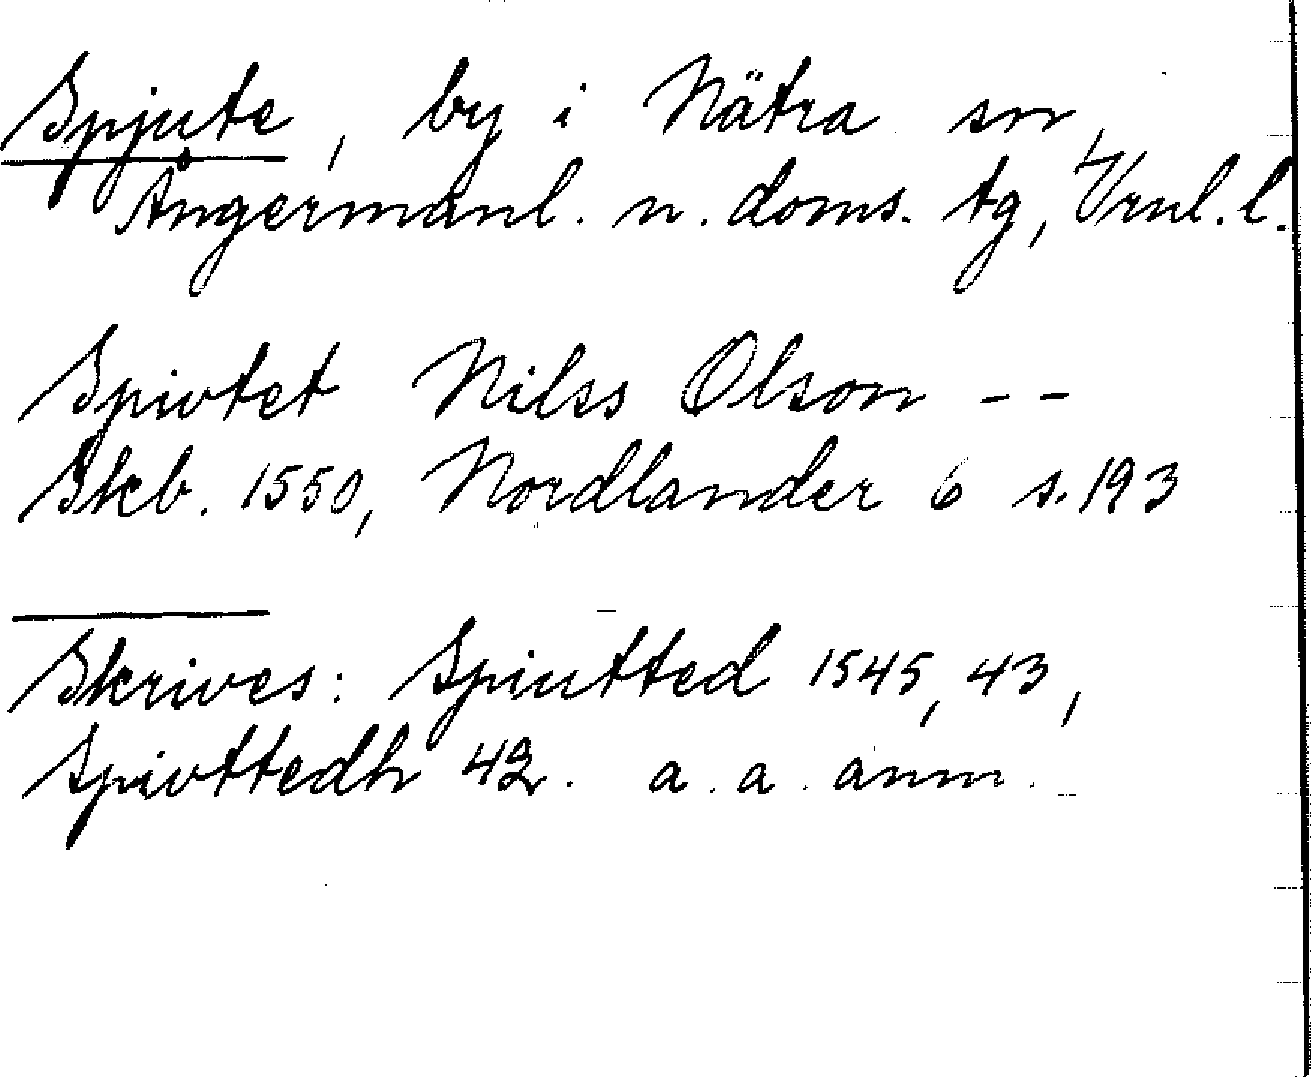 Spjute, by i Nätra sn,
Ångermanl. n. doms. tg, Vrnl. l.
Spivtet Nilss Olson - -
Skb. 1550, Nordlander 6 s. 193
Skrives: Spiutted 1545, 43,
Spivttedh 42. a. a. anm.